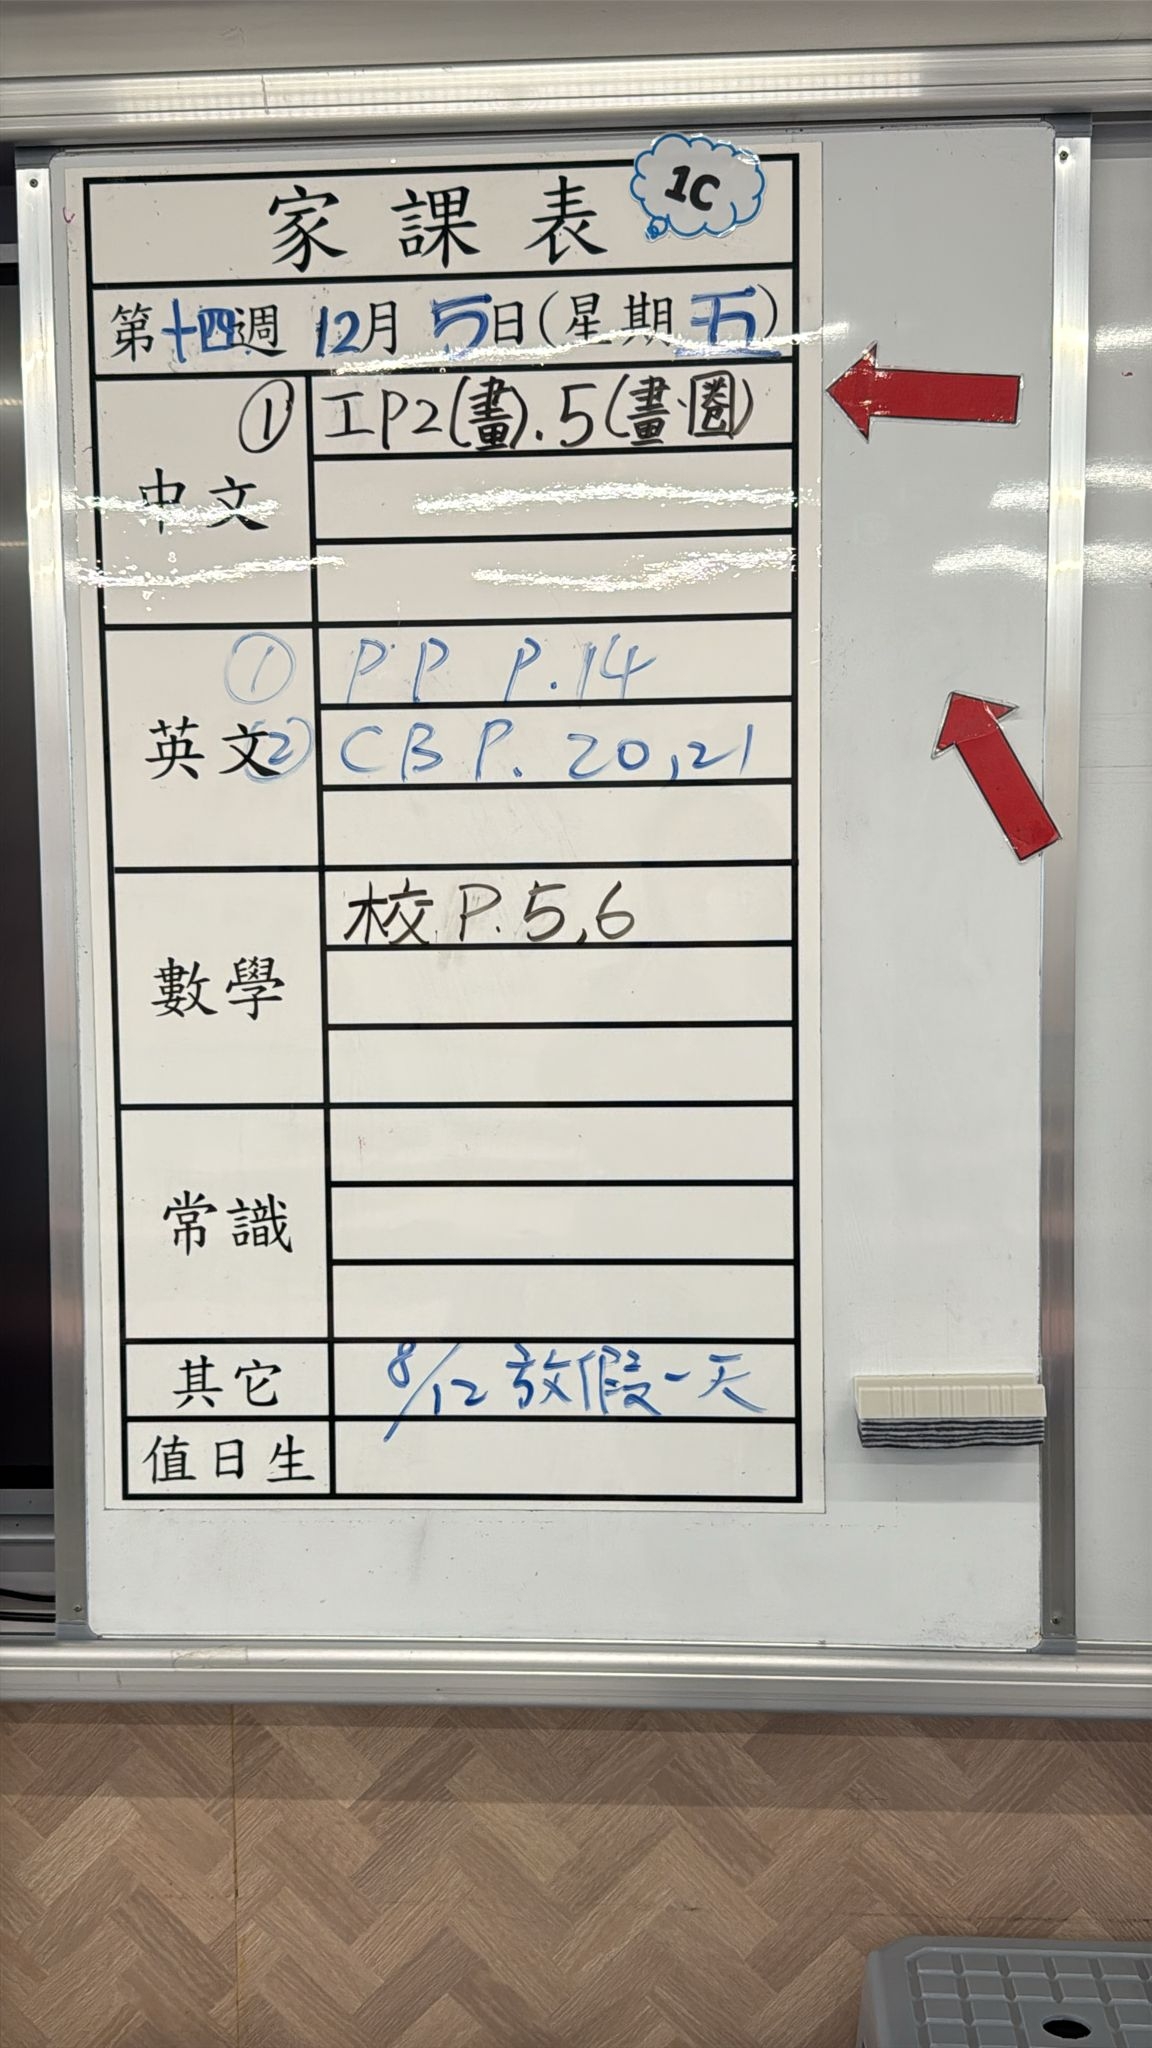 家課表 1C
第十四週 12月 5日(星期五)
中文
① 工P2(畫).5(畫.圈)
英文
① PP P.14
② CB P. 20,21
數學
校 P.5,6
常識
其它
8/12 放假一天
值日生